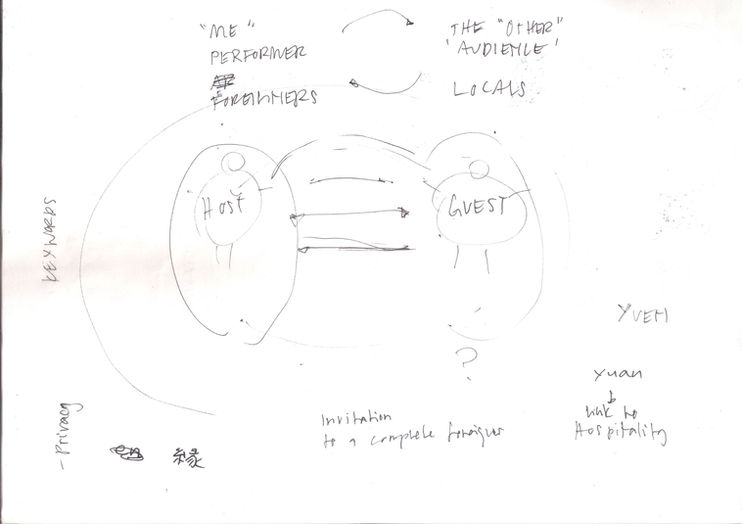 "ME"
PERFORMER
FOREIGNERS
THE "OTHER"
'AUDIENCE'
LOCALS
KEYWORDS
HOST
GUEST
?
YUEH
yuan
link to
Hospitality
Invitation
to a complete foreigner
- Privacy
緣